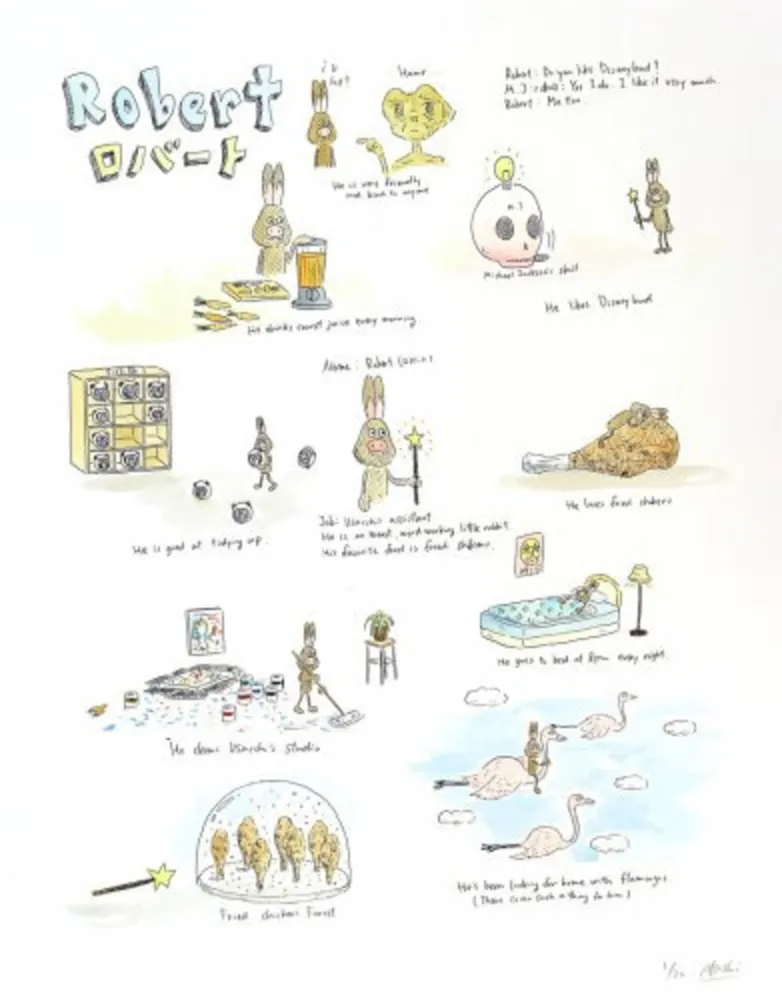 Robert
ロバート
Home
He is very friendly
and kind to anyone
Robert: Do you like Disneyland?
M.J skull: Yes I do. I like it very much.
Robert: Me too.
M.J
Michael Jackson's skull
He likes Disneyland
He drinks carrot juice every morning
Name: Robert
Job: assistant
He is an honest, hard working little rabbit
His favorite food is fried chicken.
He is good at tidying up.
He loves fried chicken
He goes to bed at 8pm every night.
He cleans studio
Fried chicken Forest
He's been looking for home with flamingos.
1/20